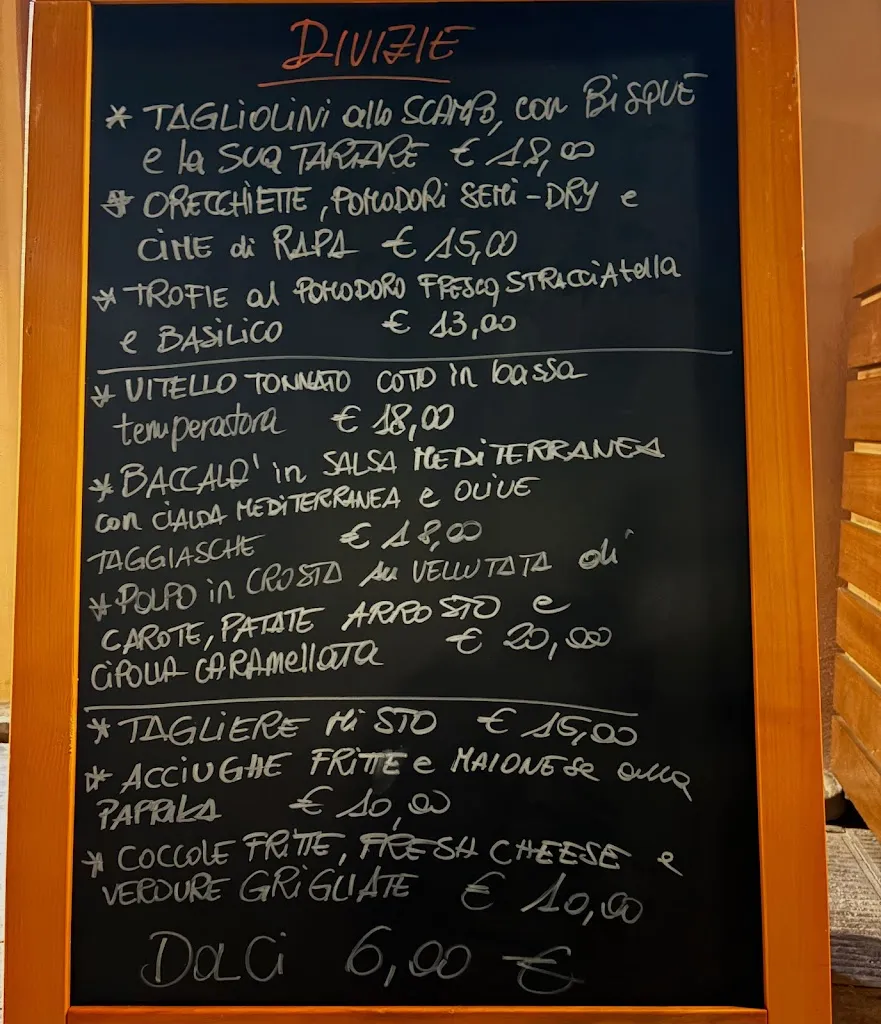 DIVIZIE
* TAGLIOLINI allo SCAMPO, con BISQUE
e la SUA TARTARE € 18,00
* ORECCHIETTE, POMODORI SEMI-DRY e
CIME di RAPA € 15,00
* TROFIE al POMODORO FRESCO STRACCIATELLA
e BASILICO € 13,00
* VITELLO TONNATO COTTO in bassa
temperatura € 18,00
* BACCALA' in SALSA MEDITERRANEA
con CIALDA MEDITERRANEA e OLIVE
TAGGIASCHE € 18,00
* POLPO in CROSTA su VELLUTATA di
CAROTE, PATATE ARROSTO e
CIPOLLA CARAMELLATA € 20,00
* TAGLIERE MISTO € 15,00
* ACCIUGHE FRITTE e MAIONESE alla
PAPRIKA € 10,00
* COCCOLE FRITTE, FRESH CHEESE e
VERDURE GRIGLIATE € 10,00
DOLCI 6,00 €